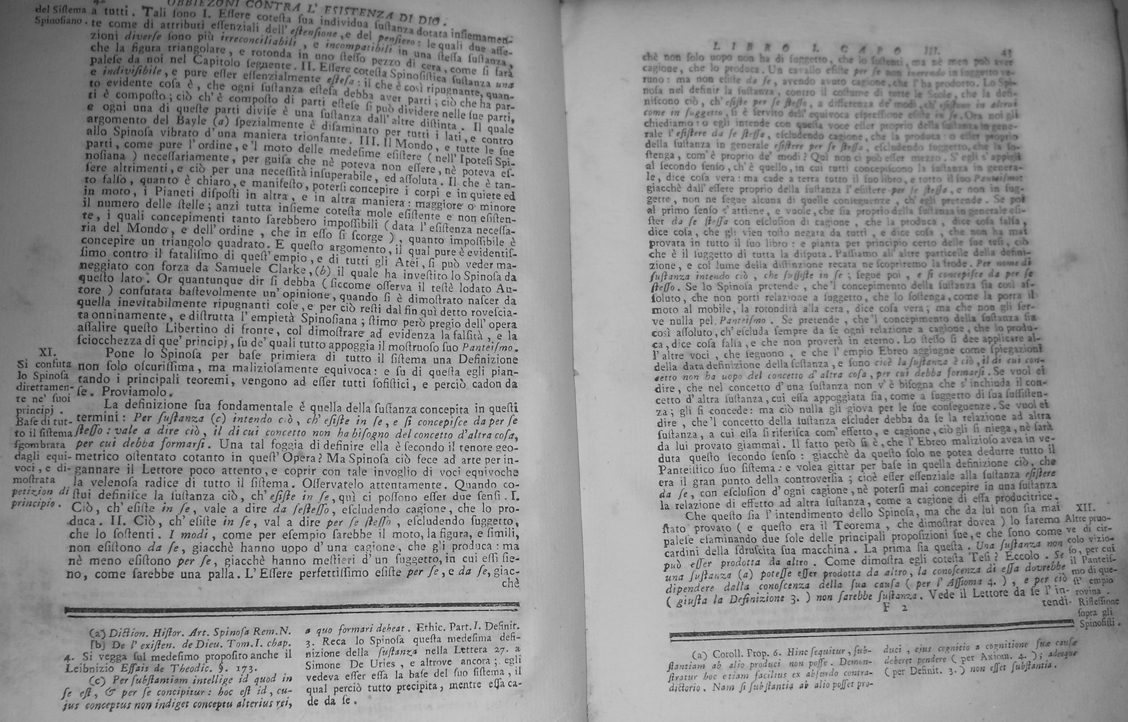 OBBIEZIONI CONTRA L' ESISTENZA DI DIO.
del Sistema
Spinosiano.
a tutti. Tali sono I. Essere cotesta sua individua sustanza dotata insiemamen-
te come di attributi essenziali dell' estensione, e del pensiero: le quali due affe-
zioni diverse sono più irreconciliabili, e incompatibili in una stessa sustanza,
che la figura triangolare, e rotonda in uno stesso pezzo di cera, come si farà
palese da noi nel Capitolo seguente. II. Essere cotesta Spinosistica sustanza una
e indivisibile, e pure esser essenzialmente estesa: il che è così ripugnante, quan-
to evidente cosa è, che ogni sustanza estesa debba aver parti; ciò che ha par-
ti è composto; ciò ch' è composto di parti estese si può dividere nelle sue parti,
e ogni una di queste parti divise è una sustanza dall' altre distinta. Il quale
argomento del Bayle (a) spezialmente è disaminato per tutti i lati, e contro
allo Spinosa vibrato d' una maniera trionfante. III. Il Mondo, e tutte le sue
parti, come pure l' ordine, e 'l moto delle medesime esistere (nell' Ipotesi Spi-
nosiana) necessariamente, per guisa che nè poteva non essere, nè poteva es-
sere altrimenti, e ciò per una necessità insuperabile, ed assoluta. Il che è tan-
to falso, quanto è chiaro, e manifesto, potersi concepire i corpi e in quiete ed
in moto, i Pianeti disposti in altra, e in altra maniera: maggiore o minore
il numero delle stelle; anzi tutta insieme cotesta mole esistente e non esisten-
te, i quali concepimenti tanto sarebbero impossibili (data l' esistenza necessa-
ria del Mondo, e dell' ordine, che in esso si scorge), quanto impossibile è
concepire un triangolo quadrato. E questo argomento, il qual pure è evidentis-
simo contro il fatalismo di quest' empio, e di tutti gli Atei, si può veder ma-
neggiato con forza da Samuele Clarke, (b) il quale ha investito lo Spinosa da
questo lato. Or quantunque dir si debba (siccome osserva il testè lodato Au-
tore) confutata bastevolmente un' opinione, quando si è dimostrato nascer da
quella inevitabilmente ripugnanti cose, e per ciò resti dal fin quì detto rovescia-
ta onninamente, e distrutta l' empietà Spinosiana; stimo però pregio dell' opera
assalire questo Libertino di fronte, col dimostrare ad evidenza la falsità, e la
sciocchezza di que' principj, su de' quali tutto appoggia il mostruoso suo Panteismo.
XI.
Si confuta
lo Spinosa
direttamen-
te ne' suoi
principj.
Base di tut-
to il sistema
sgombrata
dagli equi-
voci, e di-
mostrata
petizion di
principio.
Pone lo Spinosa per base primiera di tutto il sistema una Definizione
non solo oscurissima, ma maliziosamente equivoca: e su di questa egli pian-
tando i principali teoremi, vengono ad esser tutti sofistici, e perciò cadon da
se. Proviamolo.
La definizione sua fondamentale è quella della sustanza concepita in questi
termini: Per sustanza (c) intendo ciò, ch' esiste in se, e si concepisce da per se
stesso: vale a dire ciò, il di cui concetto non ha bisogno del concetto d' altra cosa,
per cui debba formarsi. Una tal foggia di definire ella è secondo il tenore geo-
metrico ostentato cotanto in quest' Opera? Ma Spinosa ciò fece ad arte per in-
gannare il Lettore poco attento, e coprir con tale invoglio di voci equivoche
la velenosa radice di tutto il sistema. Osservatelo attentamente. Quando co-
stui definisce la sustanza ciò, ch' esiste in se, quì ci possono esser due sensi. I.
Ciò, ch' esiste in se, vale a dire da sestesso, escludendo cagione, che lo pro-
duca. II. Ciò, ch' esiste in se, val a dire per se stesso, escludendo suggetto,
che lo sostenti. I modi, come per esempio sarebbe il moto, la figura, e simili,
non esistono da se, giacchè hanno uopo d' una cagione, che gli produca: ma
nè meno esistono per se, giacchè hanno mestieri d' un suggetto, in cui essi sie-
no, come sarebbe una palla. L' Essere perfettissimo esiste per se, e da se, giac-
chè
(a) Diction. Histor. Art. Spinosa Rem. N.
(b) De l' existen. de Dieu. Tom. I. chap.
4. Si vegga sul medesimo proposito anche il
Leibnizio Essais de Theodic. §. 173.
(c) Per substantiam intellige id quod in
se est, & per se concipitur: hoc est id, cu-
jus conceptus non indiget conceptu alterius rei,
a quo formari debeat. Ethic. Part. I. Definit.
3. Reca lo Spinosa questa medesima defi-
nizione della sustanza nella Lettera 27. a
Simone De Uries, e altrove ancora; egli
vedeva esser essa la base del suo sistema, il
qual perciò tutto precipita, mentre essa ca-
de da se.
LIBRO I. CAPO III. 43
chè non solo uopo non ha di suggetto, ma nè men può aver
cagione, che lo produca. Un cavallo esiste per se non inerendo in suggetto ve-
runo: ma non esiste da se, avendo avuto cagione, che l' ha prodotto. Lo Spi-
nosa nel definir la sustanza, contro il costume di tutte le Scole, che la defi-
niscono ciò, ch' esiste per se stesso, a differenza de' modi, ch' esistono in altrui
come in suggetto, si è servito dell' equivoca espressione esiste in se. Ora noi gli
chiediamo: o egli intende con questa voce esser proprio della sustanza in gene-
rale l' esistere da se stessa, escludendo cagione, che la produca: o esser proprio
della sustanza in generale esistere per se stessa, escludendo suggetto, che la so-
stenga, com' è proprio de' modi? Qui non ci può esser mezzo. S' egli s' appiglia
al secondo senso, ch' è quello, in cui tutti concepiscono la sustanza in genera-
le, dice cosa vera: ma cade a terra tutto il suo libro, e tutto il suo Panteismo:
giacchè dall' esser proprio della sustanza l' esistere per se stessa, e non in sug-
getto, non ne segue alcuna di quelle conseguenze, ch' egli pretende. Se poi
al primo senso s' attiene, e vuole, che sia proprio della sustanza in generale esi-
ster da se stessa con esclusion di cagione, che la produca, dice cosa falsa,
dice cosa, che gli vien tosto negata da tutti, e dice cosa, che non ha mai
provata in tutto il suo libro: e pianta per principio certo delle sue tesi, ciò
che è il suggetto di tutta la disputa. Passiamo all' altre particelle della defini-
zione, e col lume della distinzione recata ne scopriremo la frode. Per nome di
sustanza intendo ciò, che sussiste in se; segue poi, e si concepisce da per se
stesso. Se lo Spinosa pretende, che 'l concepimento della sustanza sia così as-
soluto, che non porti relazione a suggetto, che lo sostenga, come la porta il
moto al mobile, la rotondità alla cera, dice cosa vera; ma che non gli ser-
ve nulla pel Panteismo. Se pretende, che 'l concepimento della sustanza sia
così assoluto, ch' escluda sempre da se ogni relazione a cagione, che lo produ-
ca, dice cosa falsa, e che non proverà in eterno. Lo stesso si dee applicare al-
l' altre voci, che seguono, e che l' empio Ebreo aggiugne come spiegazioni
della data definizione della sustanza, e sono cioè la sustanza è ciò, il di cui con-
cetto non ha uopo del concetto d' altra cosa, per cui debba formarsi. Se vuol ei
dire, che nel concetto d' una sustanza non v' è bisogna che s' inchiuda il con-
cetto d' altra sustanza, cui essa appoggiata sia, come a suggetto di sua sussisten-
za; gli si concede: ma ciò nulla gli giova per le sue conseguenze. Se vuol ei
dire, che 'l concetto della sustanza escluder debba da se la relazione ad altra
sustanza, a cui essa si riferisca com' effetto, e cagione, ciò gli si niega, nè sarà
da lui provato giammai. Il fatto però si è, che l' Ebreo malizioso avea in ve-
duta questo secondo senso: giacchè da questo solo ne potea dedurre tutto il
Panteistico suo sistema: e volea gittar per base in quella definizione ciò, che
era il gran punto della controversia; cioè esser essenziale alla sustanza esistere
da se, con esclusion d' ogni cagione, nè potersi mai concepire in una sustanza
la relazione di effetto ad altra sustanza, come a cagione di essa produttrice.
Che questo sia l' intendimento dello Spinosa, ma che da lui non sia mai
stato provato (e questo era il Teorema, che dimostrar dovea) lo faremo
palese esaminando due sole delle principali proposizioni sue, e che sono come
cardini della sdruscita sua macchina. La prima sia questa. Una sustanza non
può esser prodotta da altro. Come dimostra egli cotesta Tesi? Eccolo. Se
una sustanza (a) potesse esser prodotta da altro, la conoscenza di essa dovrebbe
dipendere dalla conoscenza della sua causa (per l' Assioma 4.), e per ciò
(giusta la Definizione 3.) non sarebbe sustanza. Vede il Lettore da se l' in-
F 2 tendi-
XII.
Altre pruo-
ve di cir-
colo vizio-
so, per cui
il Panteis-
mo di que-
st' empio
rovina.
Riflessione
sopra gli
Spinosisti.
(a) Coroll. Prop. 6. Hinc sequitur, sub-
stantiam ab alio produci non posse. Demon-
stratur hoc etiam facilius ex absurdo contra-
dictorio. Nam si substantia ab alio posset pro-
duci, ejus cognitio a cognitione suæ causæ
deberet pendere (per Axiom. 4.); adeoque
(per Definit. 3.) non esset substantia.